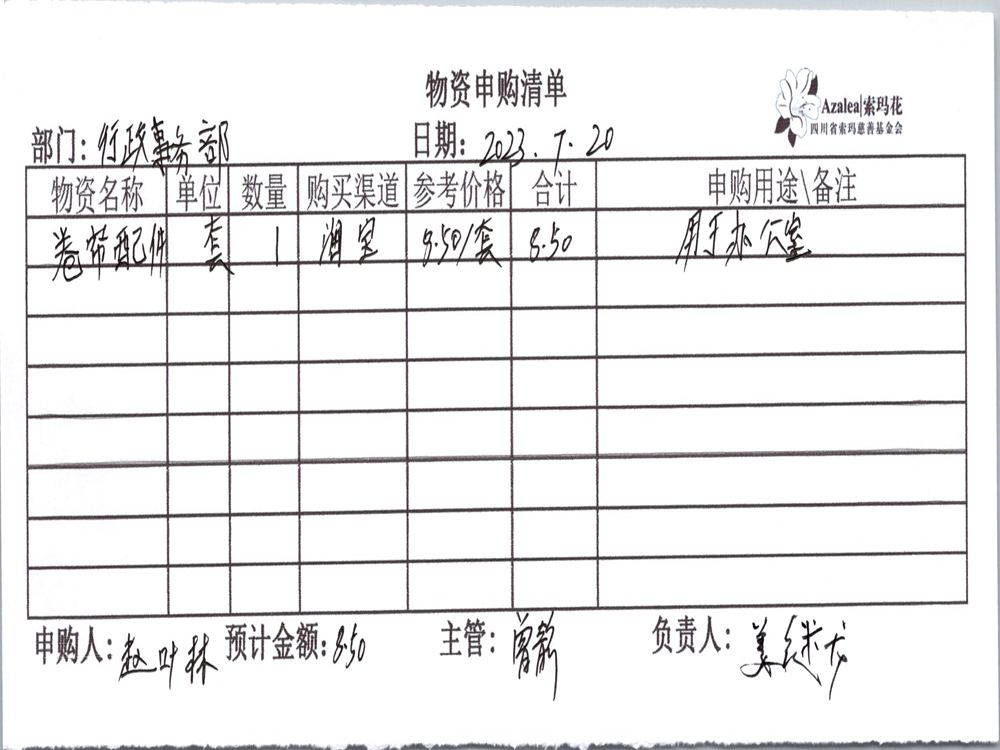 物资申购清单
Azalea|索玛花
四川省索玛慈善基金会
部门：行政事务部 日期：2023.7.20
物资名称 单位 数量 购买渠道 参考价格 合计 申购用途\备注
卷帘配件 套 1 淘宝 8.50/套 8.50 用于办公室
申购人：赵叶林 预计金额：8.50 主管：曾静 负责人：